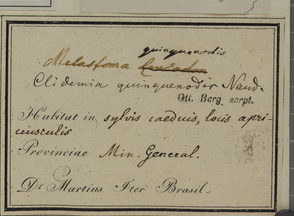 quinquenodis
Melastoma
Clidemia quinquenodis Naud.
Ott. Berg. scrpt.
Habitat in sylvis caeduis, locis apri-
ciusculis
Provinciae Min. General.
Dr Martius Iter Brasil.